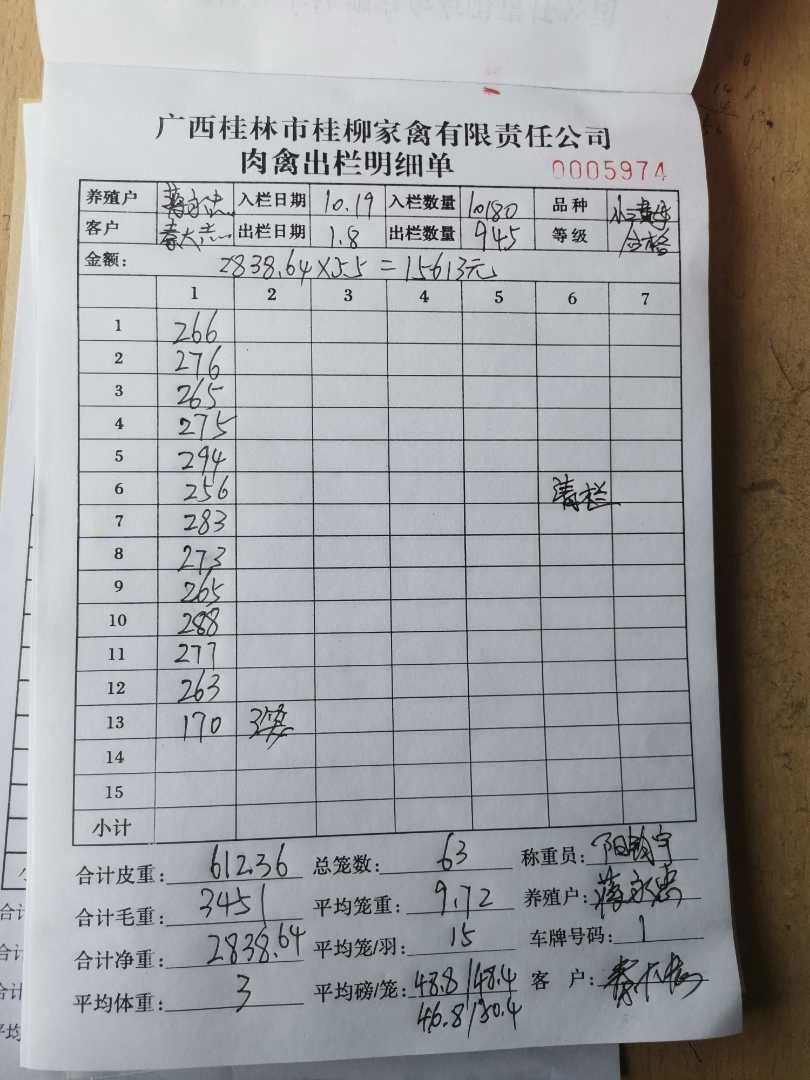 广西桂林市桂柳家禽有限责任公司
肉禽出栏明细单 0005974
养殖户 蒋永忠 入栏日期 10.19 入栏数量 10180 品种
客户 秦大志 出栏日期 1.8 出栏数量 945 等级 合格
金额: 2838.64×5.5=15613元
1 2 3 4 5 6 7
1 266
2 276
3 265
4 275
5 294
6 256 清栏
7 283
8 273
9 265
10 288
11 277
12 263
13 170 3笼
14
15
小计
合计皮重: 612.36 总笼数: 63 称重员:
合计毛重: 3451 平均笼重: 9.72 养殖户: 蒋永忠
合计净重: 2838.64 平均笼/羽: 15 车牌号码: 1
平均体重: 3 平均磅/笼: 48.8/48.4 客 户:
46.8/50.4